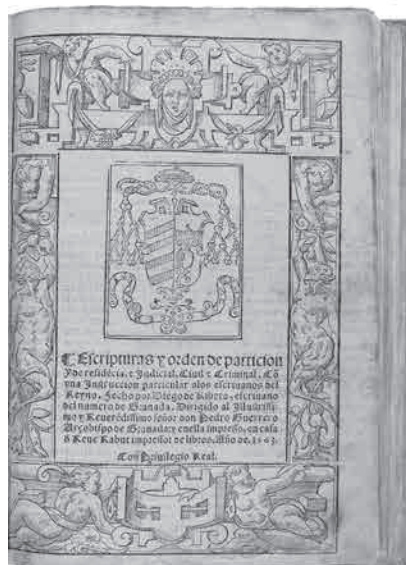 ☾ Escripturas y orden de particion
y de residẽcia, e Judicial, Civil e Criminal, Cõ
vna Instruccion particular alos escriuanos del
Reyno. Fecho por Diego de Ribera, escriuano
del numero de Granada. Dirigido al Illustrissi-
mo y Reuerẽdissimo señor don Pedro Guerrero
Arçobispo de Granada: y en ella impresso, en casa
d Rene Rabut impressor de libros. Año de. 1563.
Con Priuilegio Real.